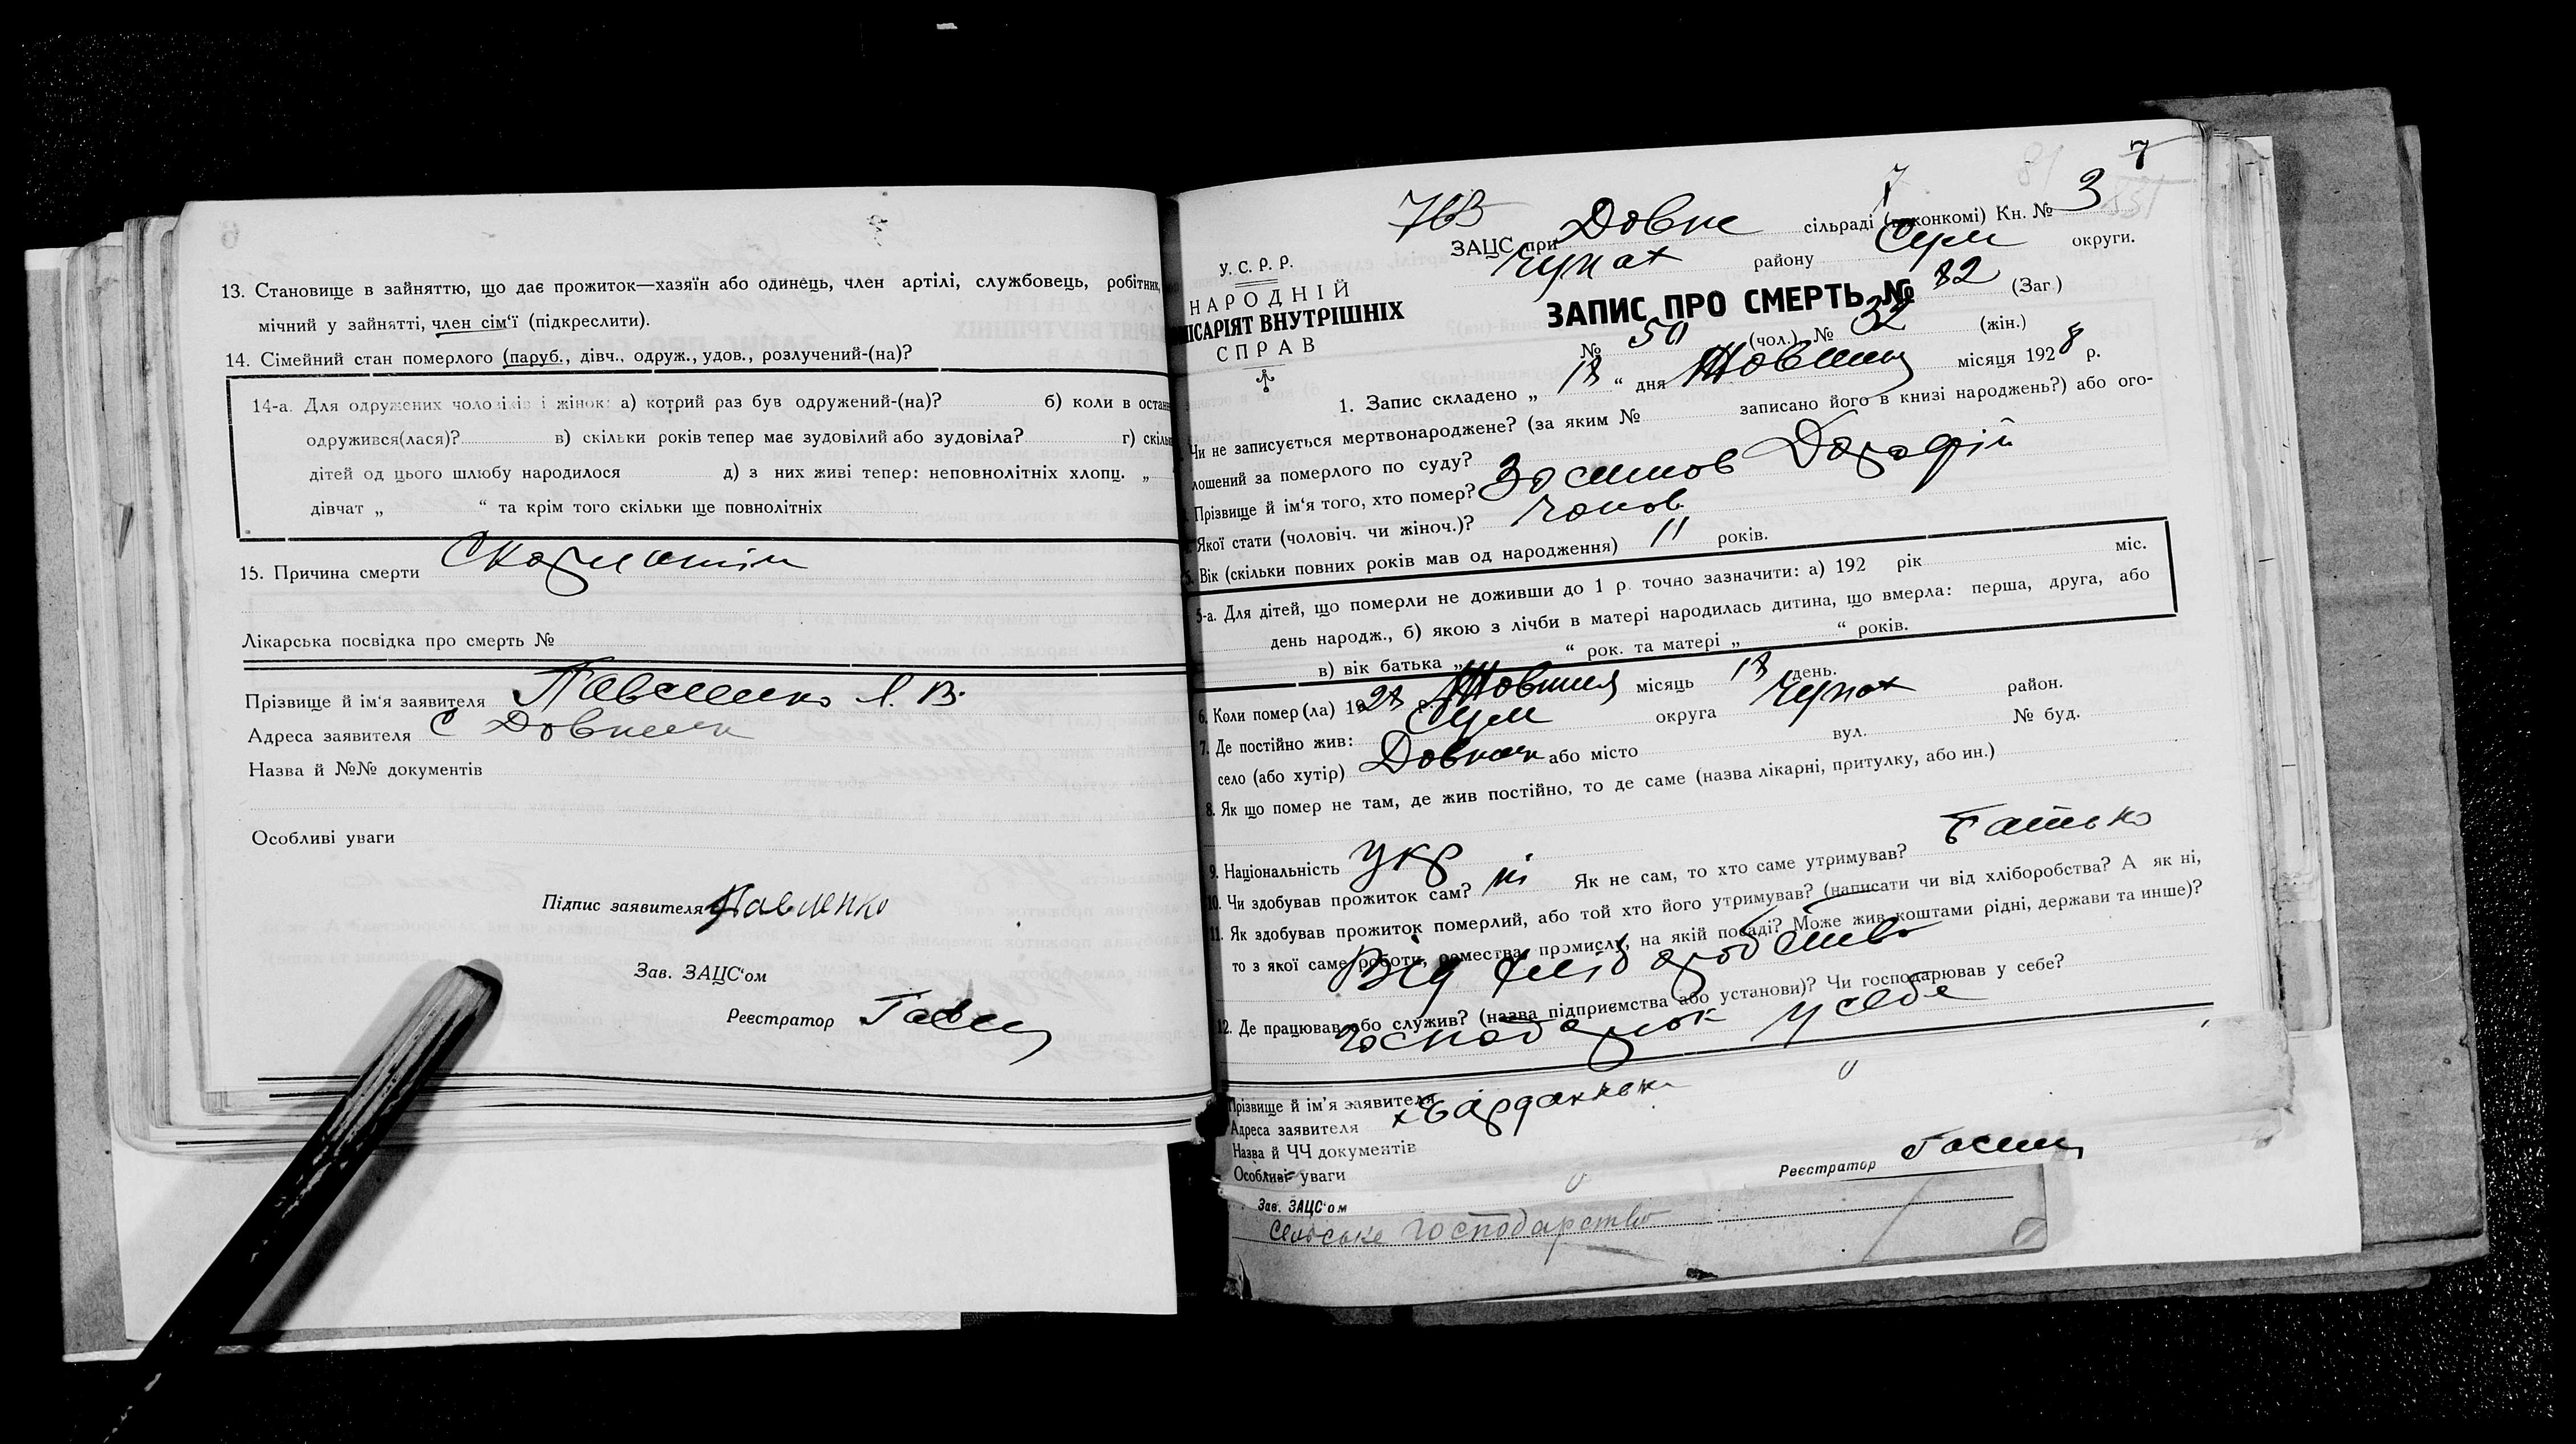 13. Становище в зайняттю, що дає прожиток—хазяїн або одинець, член артілі, службовець, робітник,
мічний у зайнятті, член сім'ї (підкреслити).
14. Сімейний стан померлого (паруб., дівч., одруж., удов., розлучений-(на)?
14-а. Для одружених чоловіків і жінок: а) котрий раз був одружений-(на)? б) коли в остан
одружився(лася)? в) скільки років тепер має зудовілий або зудовіла? г) скіль
дітей од цього шлюбу народилося д) з них живі тепер: неповнолітніх хлопц. „
дівчат „ “ та крім того скільки ще повнолітніх
15. Причина смерти Скарлатін
Лікарська посвідка про смерть №
Прізвище й ім'я заявителя Павленко І. В.
Адреса заявителя С Довжик
Назва й №№ документів
Особливі уваги
Підпис заявителя Павленко
Зав. ЗАЦС'ом
Реєстратор
7
ЗАЦС при Довж сільраді (виконкомі) Кн. № 3
Чупах району Сум округи.
У. С. Р. Р.
НАРОДНІЙ
ІСАРІЯТ ВНУТРІШНІХ
СПРАВ
ЗАПИС ПРО СМЕРТЬ № 82 (Заг.)
№ 50 (чол.) № 32 (жін.)
1. Запис складено „ 18 “ дня Жовтня місяця 1928 р.
Чи не записується мертвонароджене? (за яким № записано його в книзі народжень?) або ого-
лошений за померлого по суду?
Прізвище й ім'я того, хто помер? Дорофій
Якої стати (чоловіч. чи жіноч.)? чолов.
5. Вік (скільки повних років мав од народження) 11 років.
5-а. Для дітей, що померли не доживши до 1 р. точно зазначити: а) 192 рік міс.
день народж., б) якою з лічби в матері народилась дитина, що вмерла: перша, друга, або
в) вік батька „ “ рок. та матері „ “ років.
6. Коли помер(ла) 1928 р. Жовтня місяць 18 день.
7. Де постійно жив: Сум округа Чупах район.
село (або хутір) Довжик або місто вул. № буд.
8. Як що помер не там, де жив постійно, то де саме (назва лікарні, притулку, або ин.)
9. Національність Укр
10. Чи здобував прожиток сам? ні Як не сам, то хто саме утримував? Батько
11. Як здобував прожиток померлий, або той хто його утримував? (написати чи від хліборобства? А як ні,
то з якої саме роботи, ремества, промислу, на якій посаді? Може жив коштами рідні, держави та инше)?
Від хліборобства
12. Де працював або служив? (назва підприємства або установи)? Чи господарював у себе?
господарюв у себе
Прізвище й ім'я заявителя
Адреса заявителя
Назва й ЧЧ документів
Особливі уваги
Реєстратор
Зав. ЗАЦС'ом
Сельське господарство